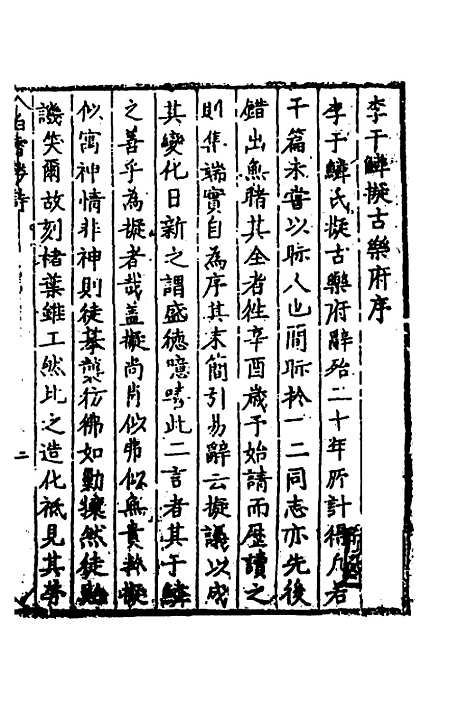 李于鱗擬古樂府序
李于鱗氏擬古樂府辭殆二十年所計得凡若
干篇未嘗以眎人也間眎於一二同志亦先後
錯出無睹其全者徃辛酉歲于始請而歷讀之
則集端實自為序其末簡引易辭云擬議以成
其變化日新之謂盛德噫嘻此二言者其于鱗
之善乎為擬者哉盖擬尚肖似弗似無貴於擬
似寓神情非神則徒摹襲彷彿如勦攘然徒貽
譏笑爾故刻楮葉雖工然比之造化祗見其勞
二